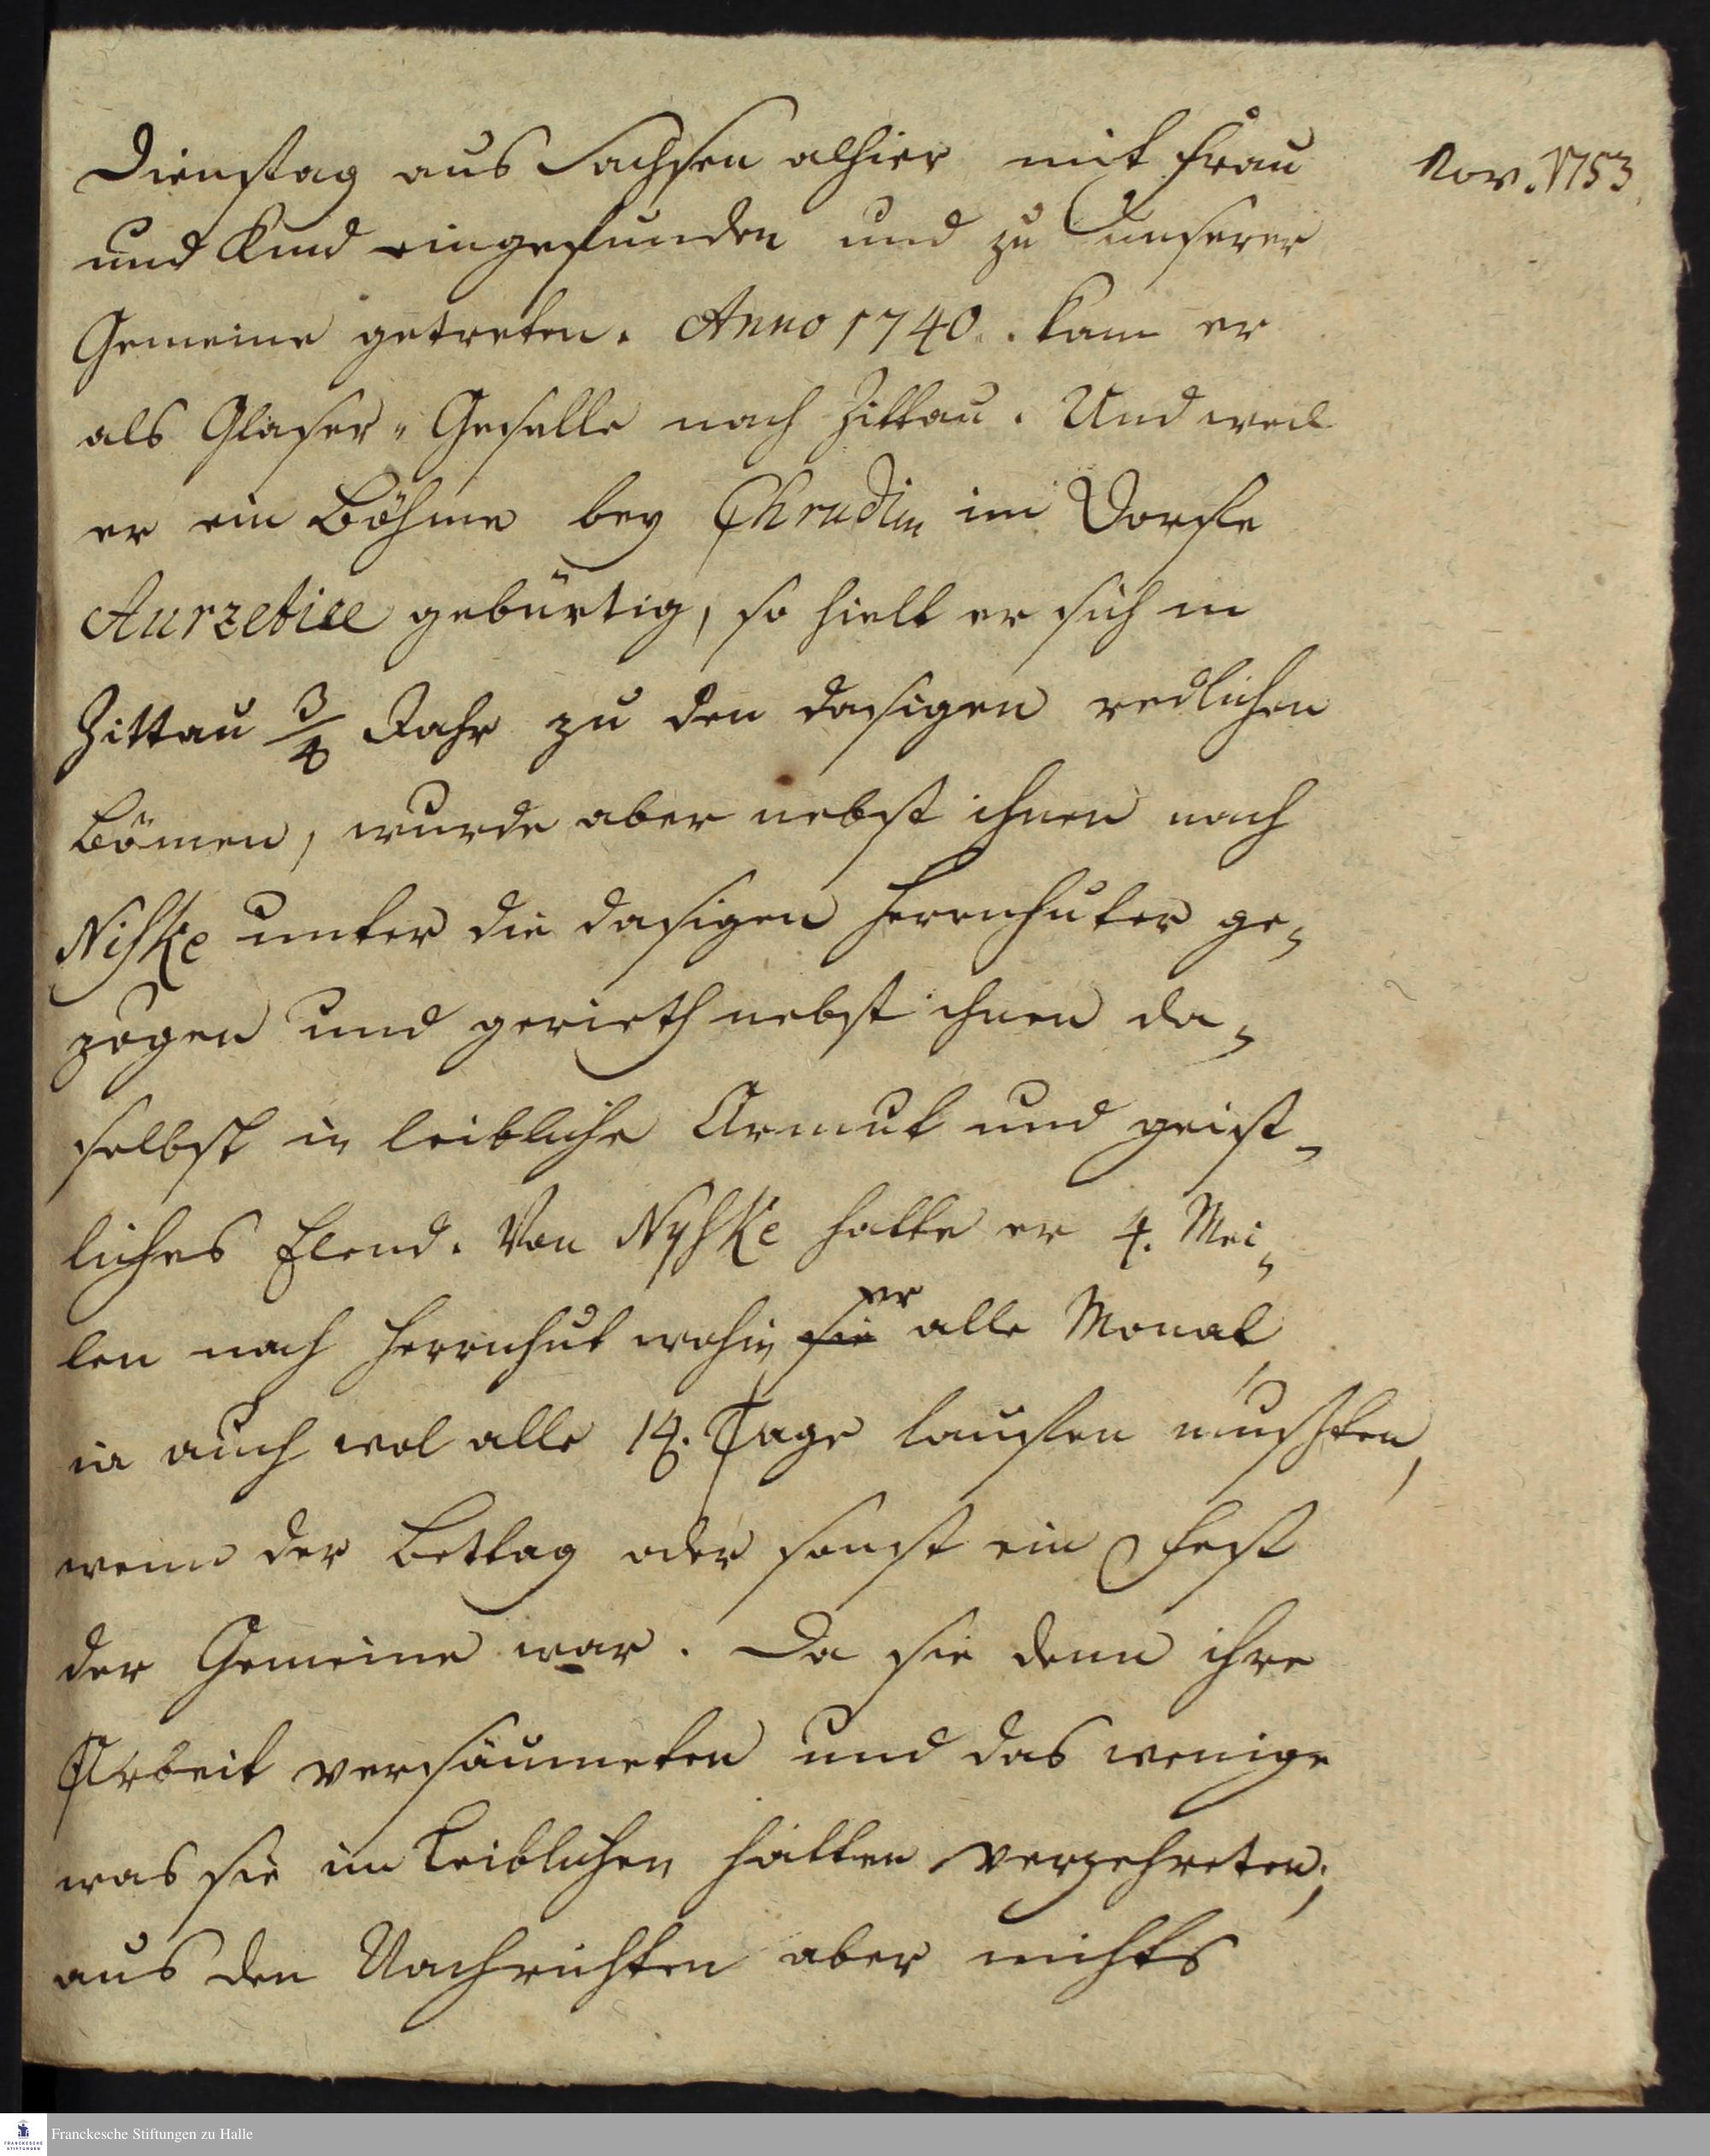 Nov. 1753.
Dienstag aus Sachsen alhier mit Frau
und Kind eingefunden und zu unserer
Gemeine getreten. Anno 1740. kam er
als Glaser-Geselle nach Zittau. Und weil
er ein Böhme bey Chrudim im Dorfe
gebürtig, so hielt er sich in
Zittau 3/4 Jahr zu den dasigen redlichen
Bömen, wurde aber nebst ihnen nach
Niske unter die dasigen Herrnhuter ge-
zogen und gerieth nebst ihnen da-
selbst in leibliche Armut und geist-
liches Elend. Von Nyske hatte er 4. Mei-
len nach Herrnhut wohin sie er alle Monat
ia auch wol alle 14. Tage lauffen mußten,
wenn der Bettag oder sonst ein Fest
der Gemeine war. Da sie denn ihre
Arbeit versäumeten und das wenige
was sie im Leiblichen hatten verzehreten;
aus den Nachrichten aber nichts
Franckesche Stiftungen zu Halle